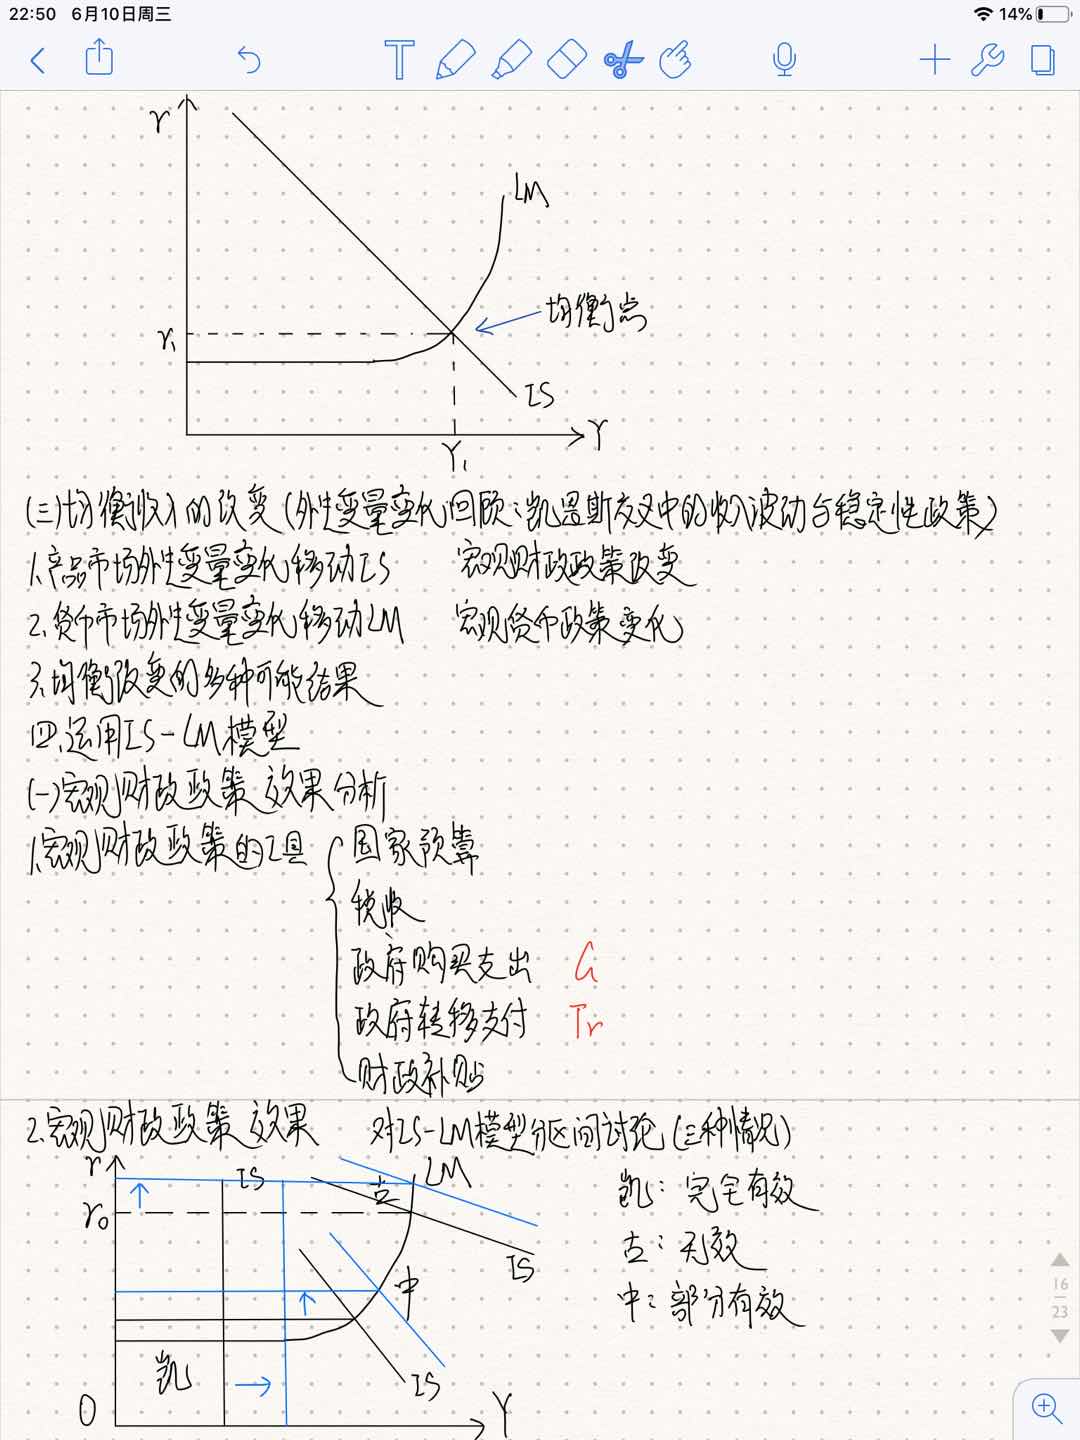 22:50 6月10日周三 14%
r
LM
均衡点
r₁
IS
Y
Y₁
(三)均衡收入的改变(外生变量变化,回顾:凯恩斯交叉中的收入波动与稳定性政策)
1.产品市场外生变量变化,移动IS 宏观财政政策改变
2.货币市场外生变量变化,移动LM 宏观货币政策变化
3.均衡改变的多种可能结果
四.运用IS-LM模型
(一)宏观财政政策效果分析
1.宏观财政政策的工具 国家预算
税收
政府购买支出 G
政府转移支付 Tr
财政补贴
2.宏观财政政策效果 对IS-LM模型分区间讨论(三种情况)
r IS 古 LM
凯:完全有效
r₀
古:无效
IS
中
中:部分有效
凯
IS
O
Y
16
23